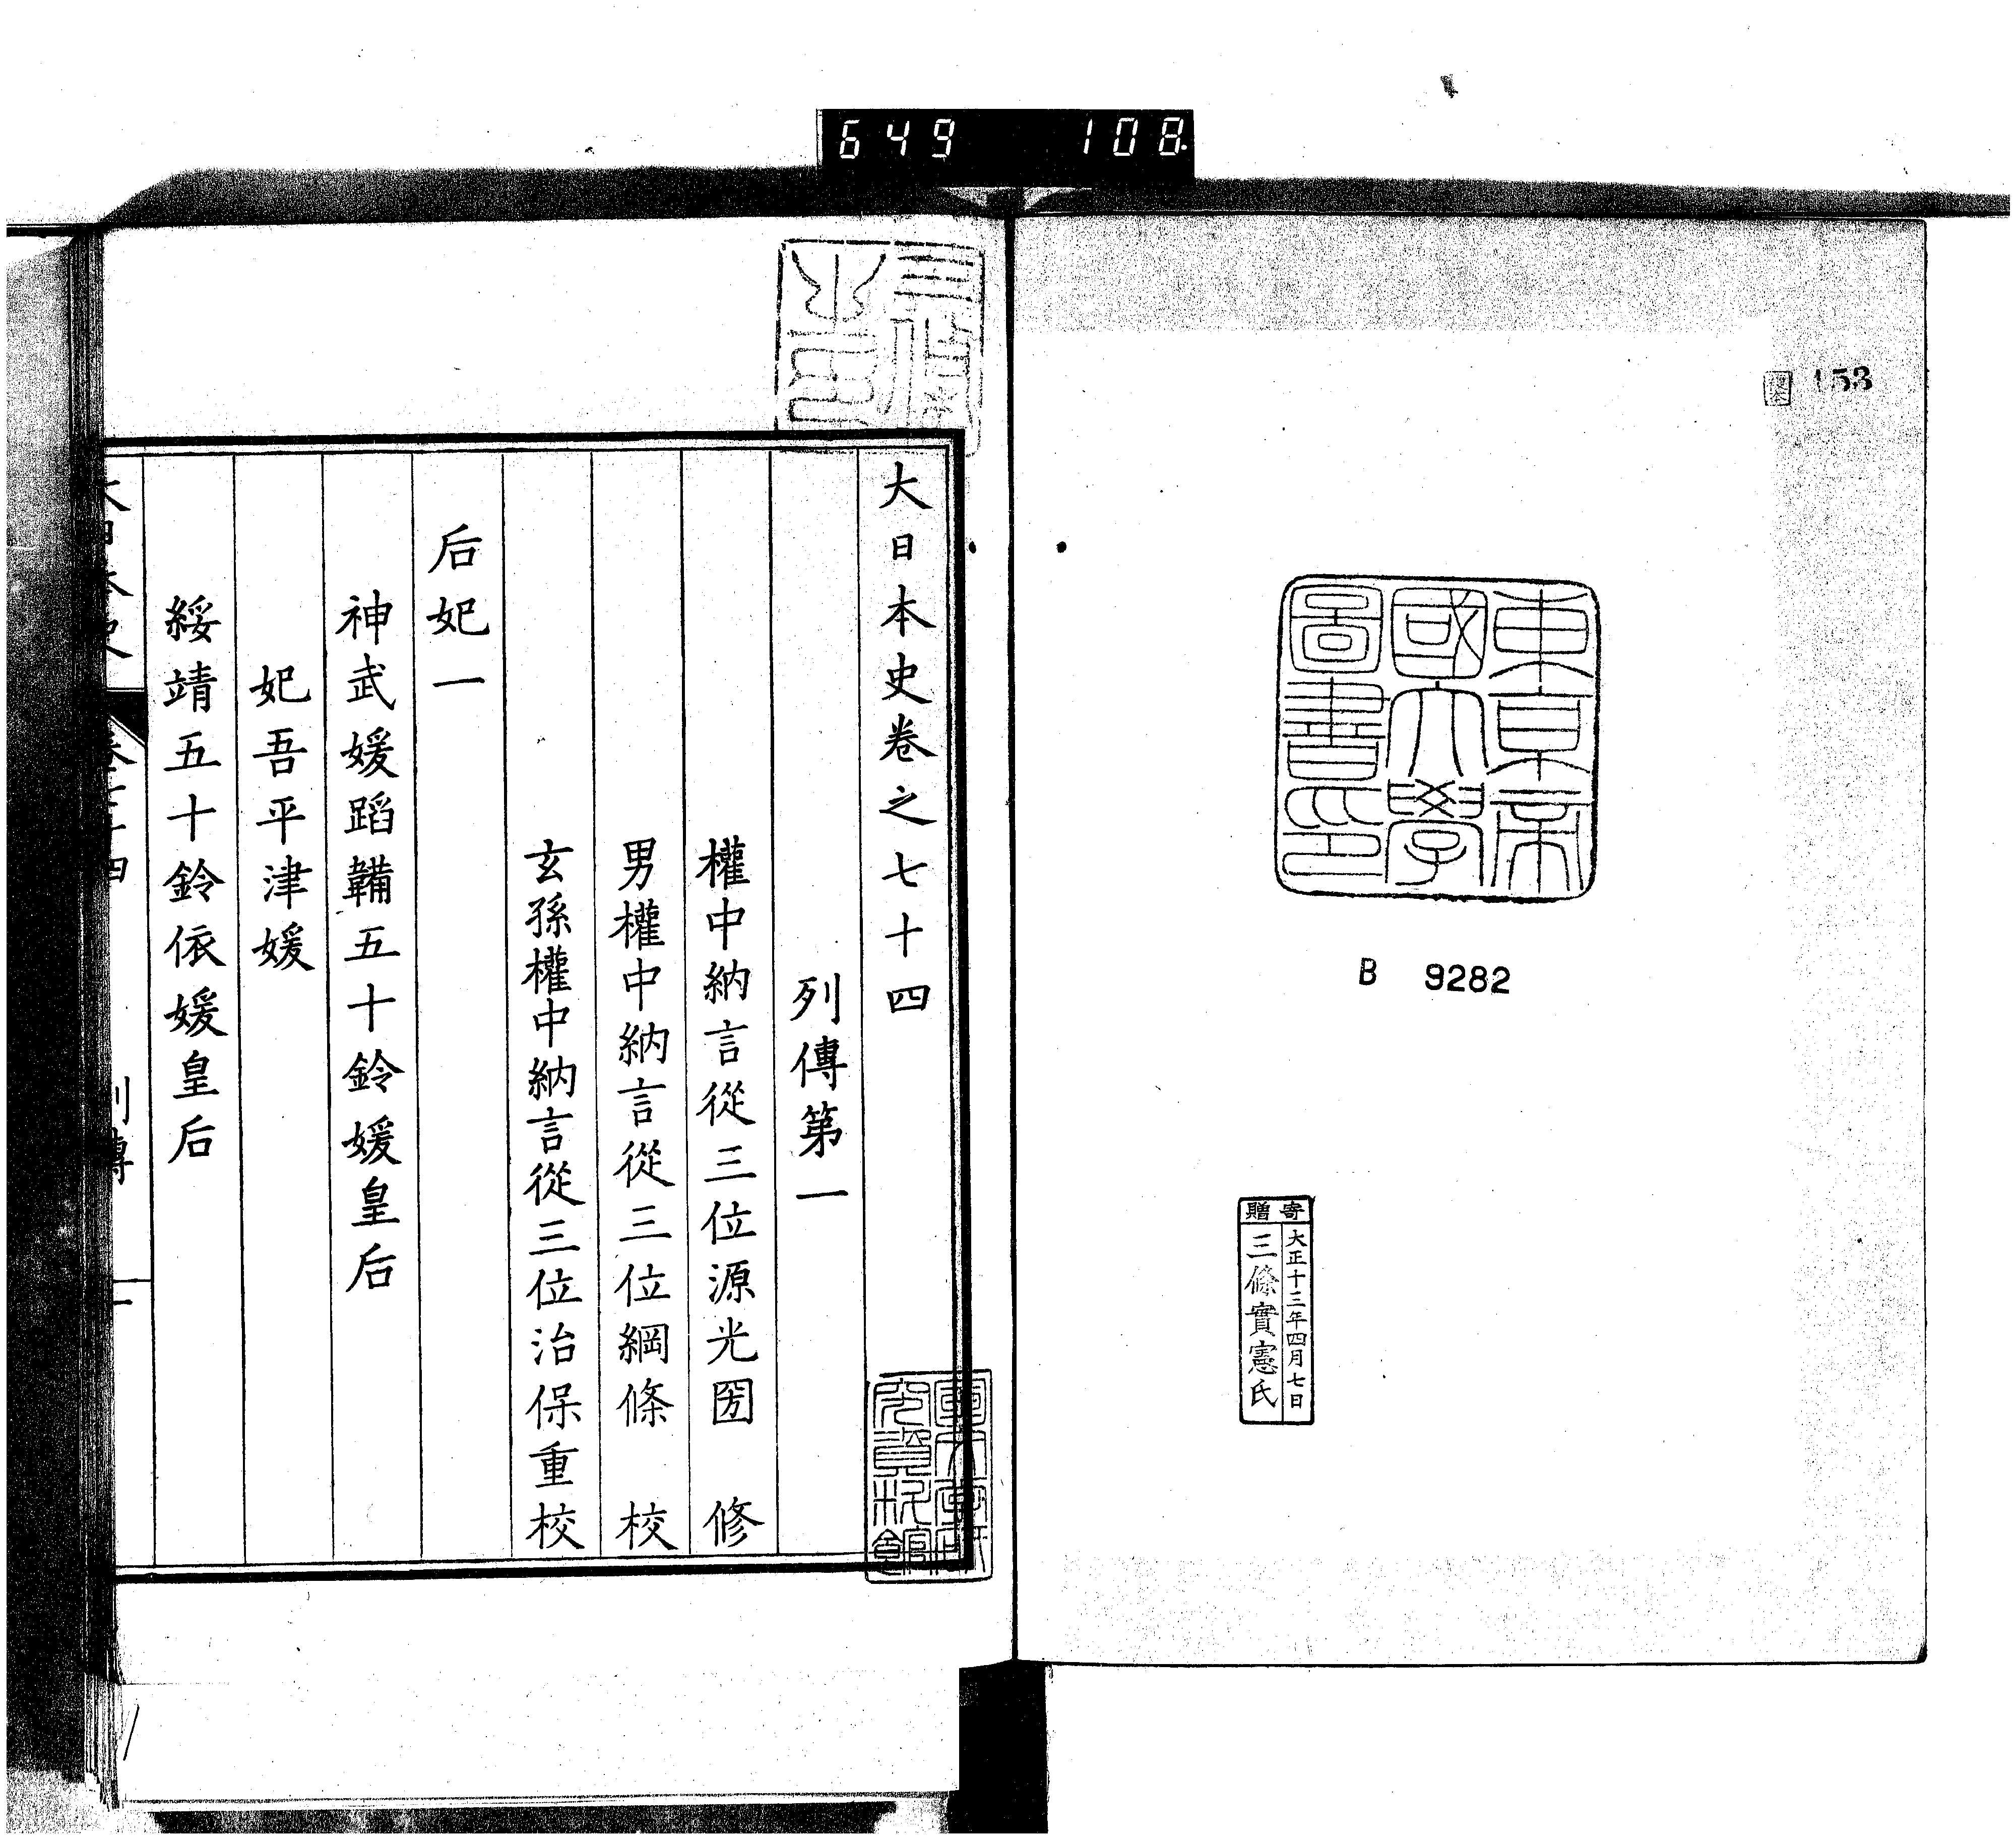 649 108
153
東京帝
國大學
圖書印
B 9282
寄贈
大正十三年四月七日
三條實憲氏
大日本史卷之七十四
列傳第一
權中納言從三位源光圀 修
男權中納言從三位綱條 校
玄孫權中納言從三位治保重校
后妃一
神武媛蹈韛五十鈴媛皇后
妃吾平津媛
綏靖五十鈴依媛皇后